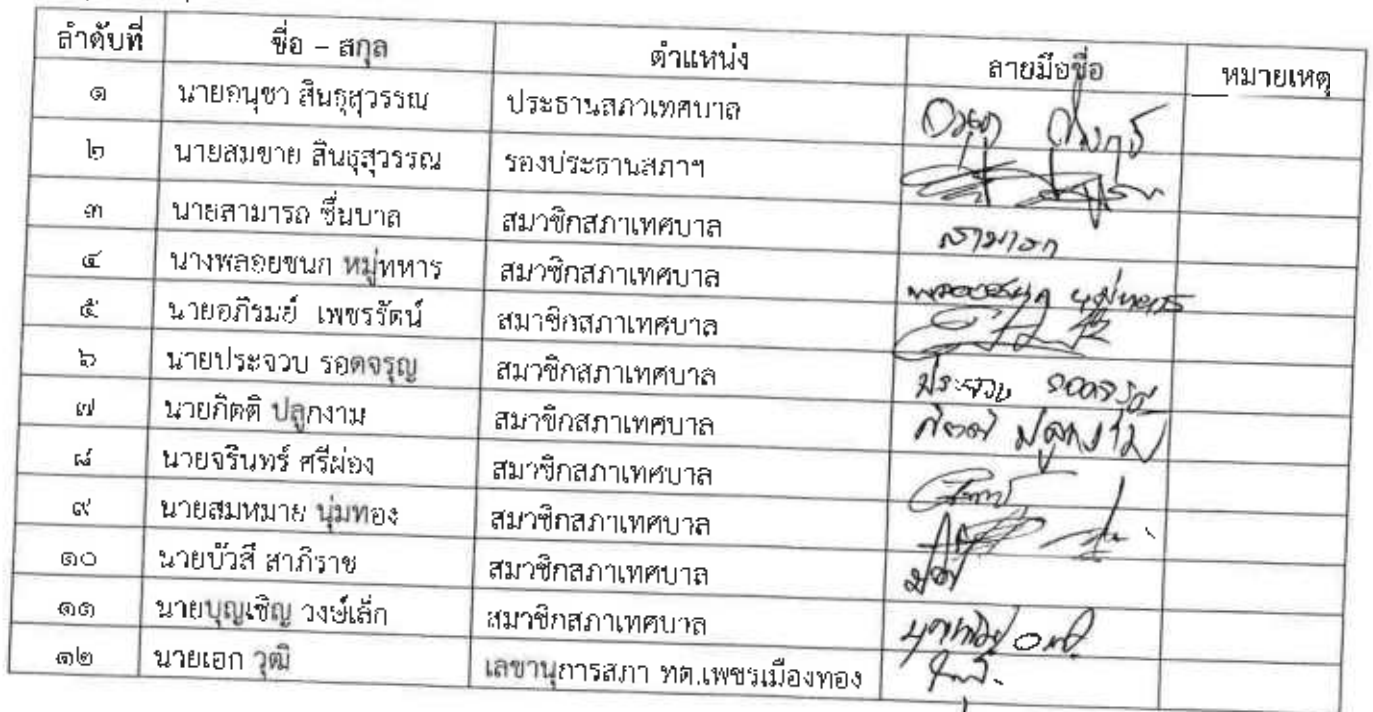 ลำดับที่ ชื่อ – สกุล ตำแหน่ง ลายมือชื่อ หมายเหตุ
๑ นายอนุชา สินธุสุวรรณ ประธานสภาเทศบาล
๒ นายสมชาย สินธุสุวรรณ รองประธานสภาฯ
๓ นายสามารถ ชื่นบาล สมาชิกสภาเทศบาล สามารถ
๔ นางพลอยชนก หมู่ทหาร สมาชิกสภาเทศบาล พลอยชนก หมู่ทหาร
๕ นายอภิรมย์ เพชรรัตน์ สมาชิกสภาเทศบาล
๖ นายประจวบ รอดจรูญ สมาชิกสภาเทศบาล ประจวบ
๗ นายกิตติ ปลูกงาม สมาชิกสภาเทศบาล กิตติ ปลูกงาม
๘ นายจรินทร์ ศรีผ่อง สมาชิกสภาเทศบาล
๙ นายสมหมาย นุ่มทอง สมาชิกสภาเทศบาล
๑๐ นายบัวสี สาภิราช สมาชิกสภาเทศบาล
๑๑ นายบุญเชิญ วงษ์เล็ก สมาชิกสภาเทศบาล
๑๒ นายเอก วุฒิ เลขานุการสภา ทต.เพชรเมืองทอง